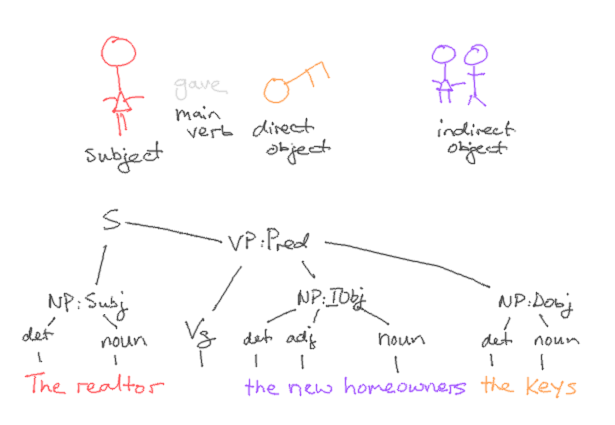 gave
main verb
subject
direct object
indirect object
S
VP:Pred
NP:Subj
NP:IObj
NP:Dobj
det noun Vg det adj noun det noun
The realtor the new homeowners the keys